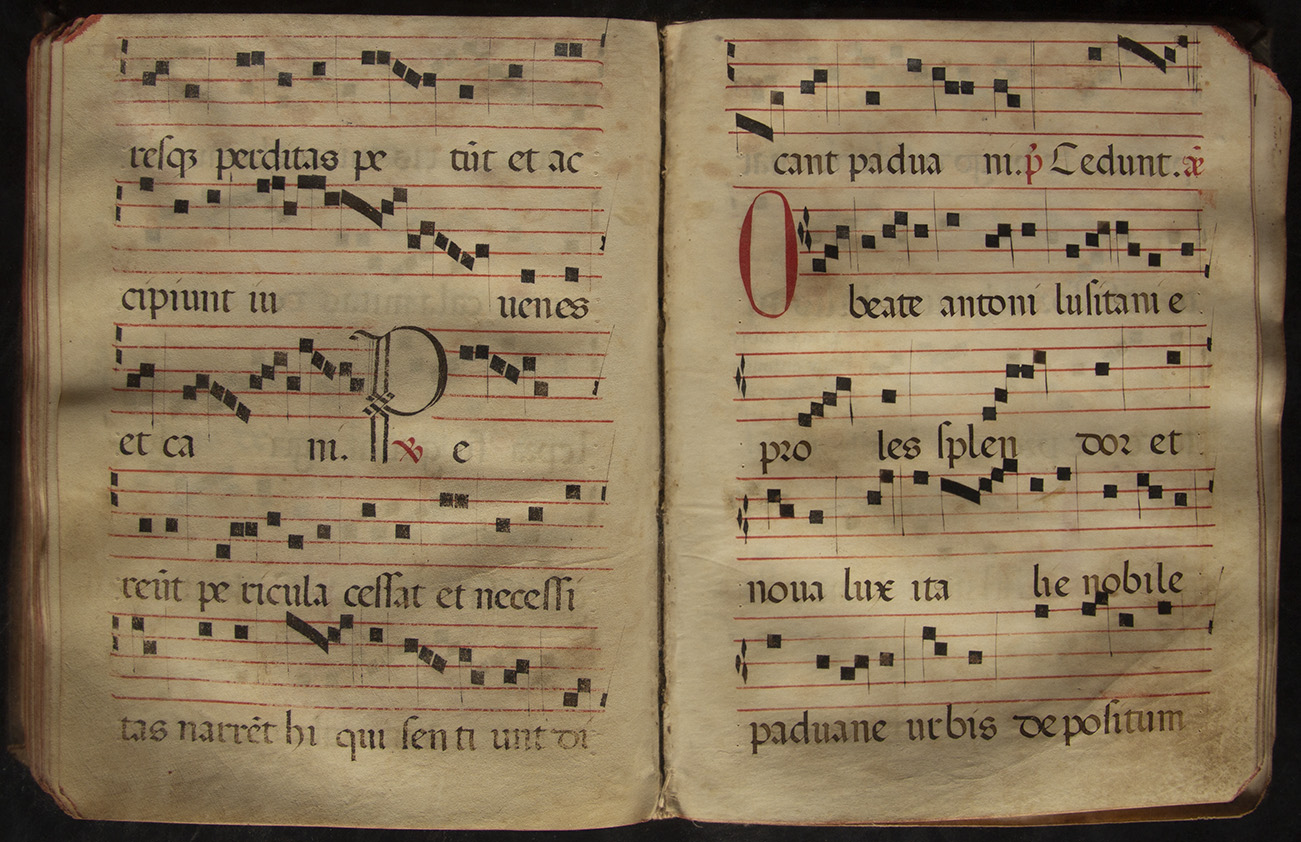 resqꝫ perditas pe tūt et ac
cipiunt iu uenes
et ca ni. ℣ P e
reūt pe ricula cessat et necessi
tas narrēt hi qui sen ti unt di
cant padua ni. p̄ Cedunt. añ
O beate antoni lusitani e
pro les splen dor et
noua lux ita lie nobile
paduane urbis depositum